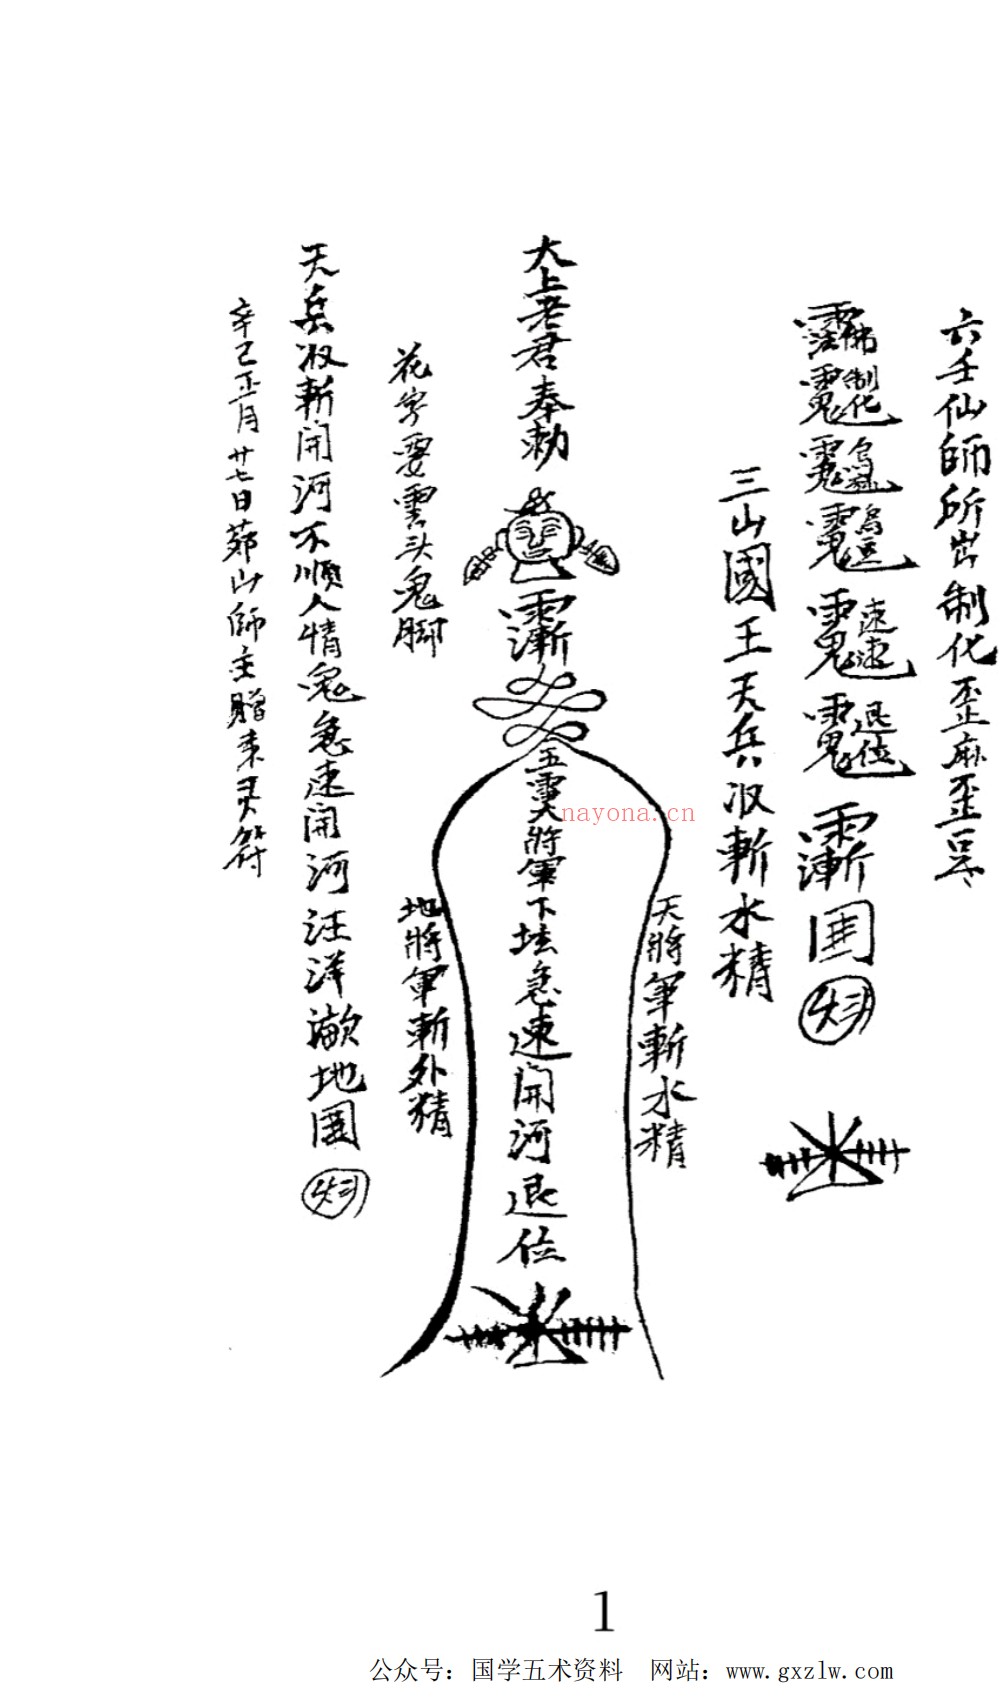 六壬仙師所出制化歪麻歪
佛法 制化 速速 退位
三山國王天兵收斬水精
天將軍斬水精
太上老君奉勅
五雷大將軍下坛急速開河退位
地將軍斬外精
花字要雲头鬼脚
天兵收斬開河不順人情鬼急速開河汪洋 地
辛已正月廿七日茆山師主贈来灵符
nayona.cn
1
公众号：国学五术资料 网站：www.gxzlw.com